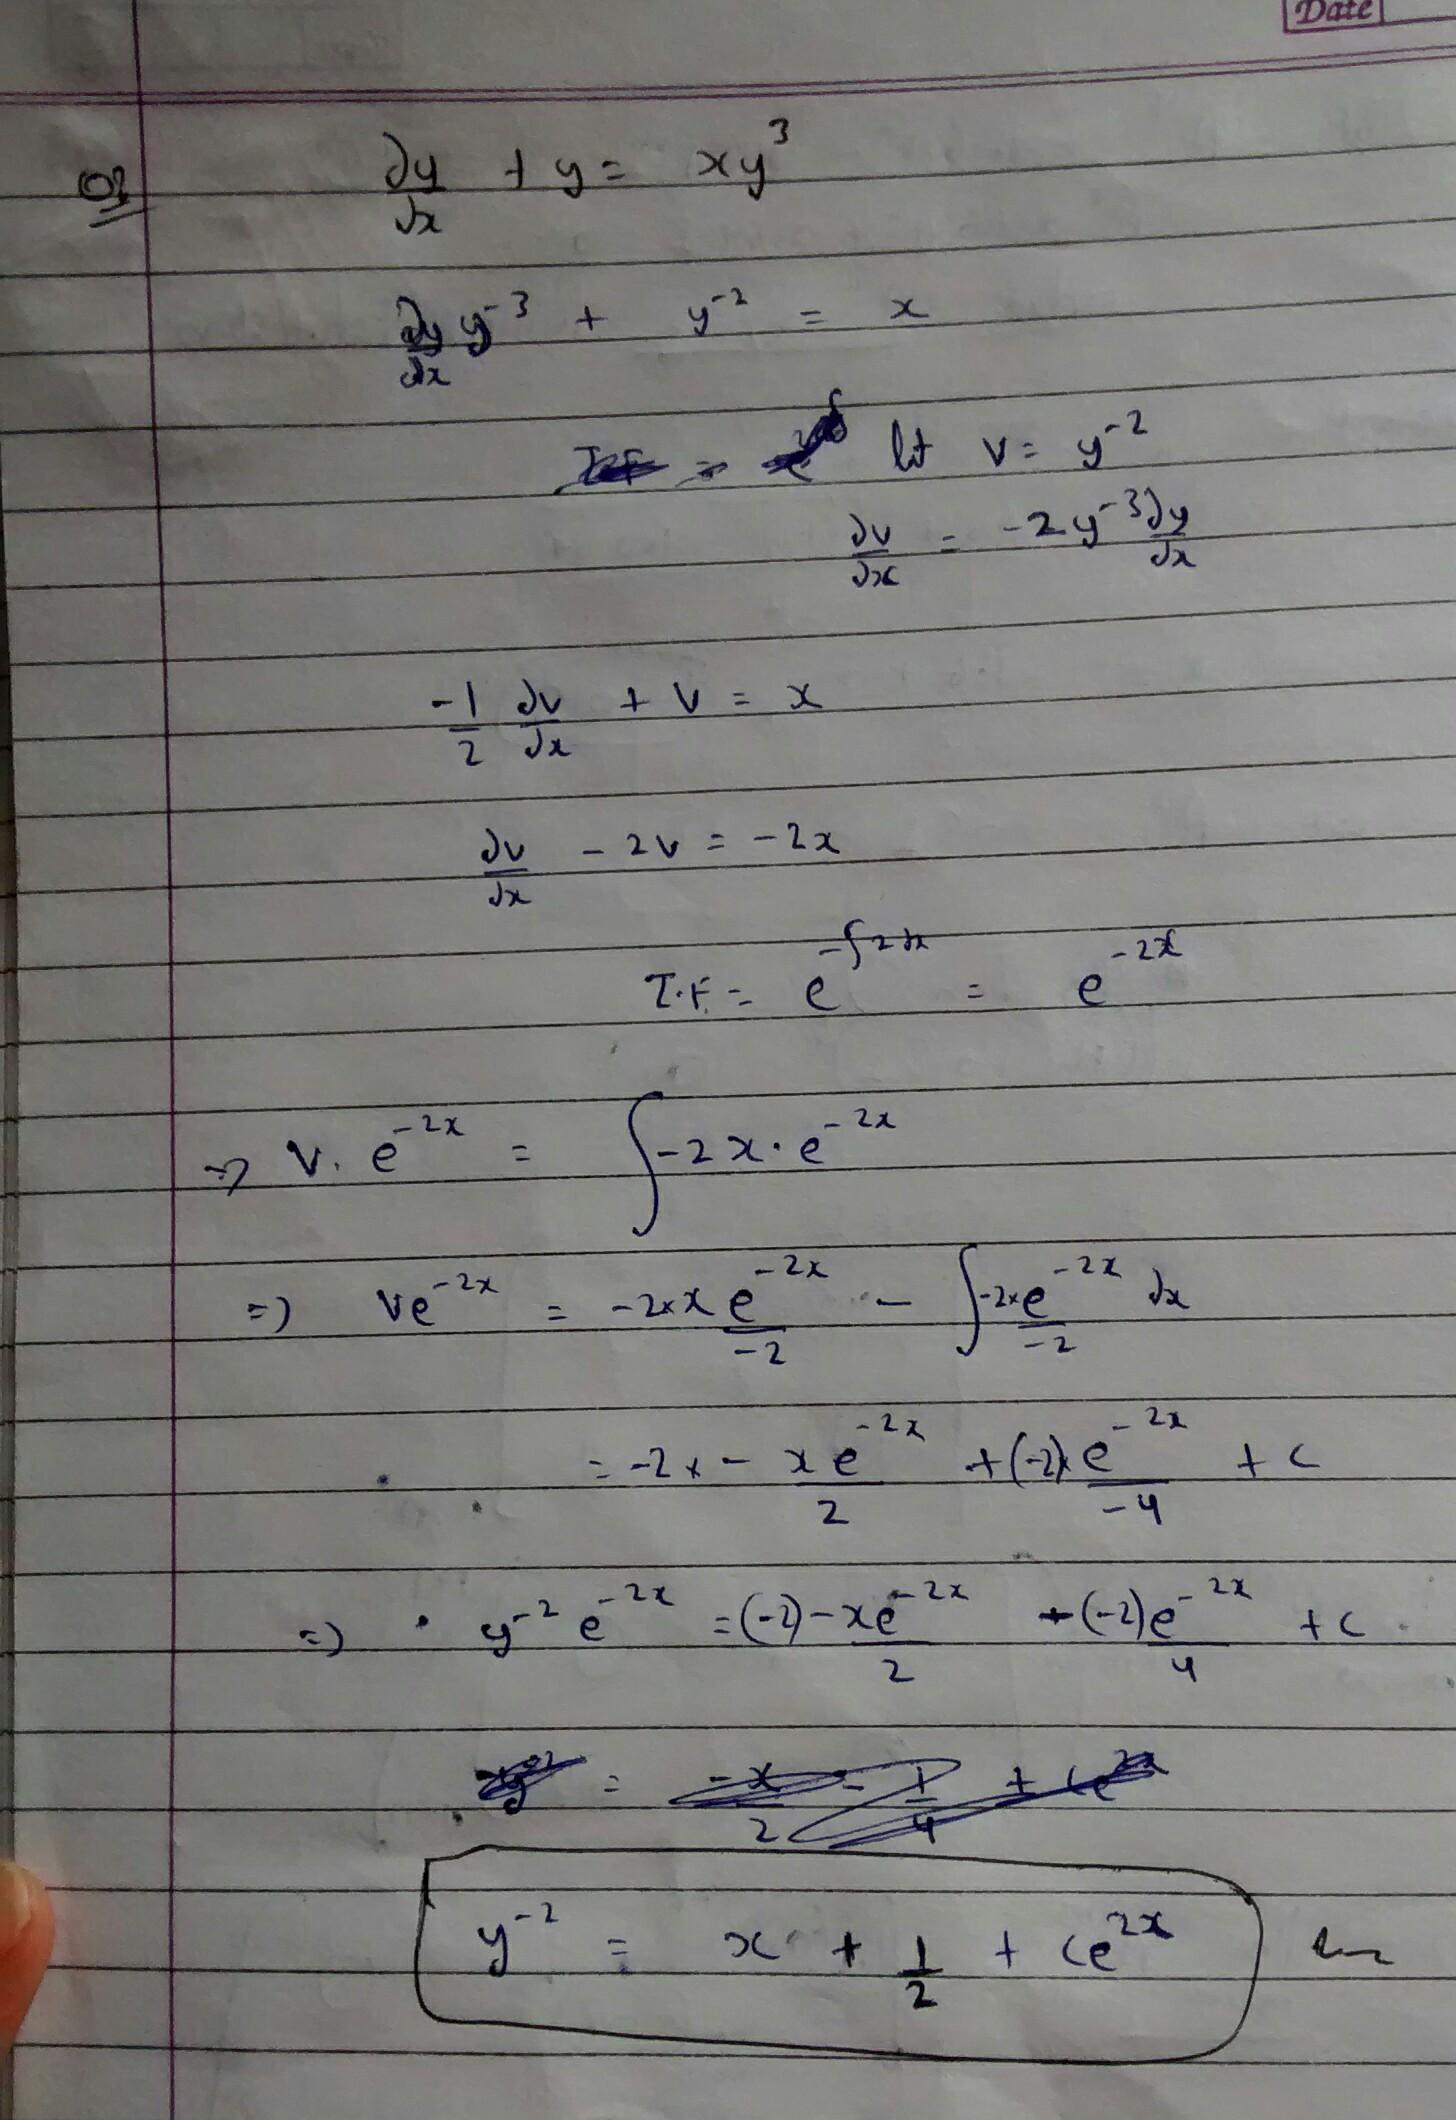 Date
dy/dx + y = xy³
dy/dx y⁻³ + y⁻² = x
let v = y⁻²
dv/dx = -2y⁻³ dy/dx
-1/2 dv/dx + v = x
dv/dx - 2v = -2x
I.F = e^(-∫2dx) = e^(-2x)
⇒ v. e^(-2x) = ∫-2x·e^(-2x)
⇒ ve^(-2x) = -2×x e^(-2x)/-2 - ∫-2×e^(-2x)/-2 dx
= -2× - xe^(-2x)/2 + (-2)×e^(-2x)/-4 + c
⇒ y⁻² e^(-2x) = (-2) - xe^(-2x)/2 - (-2)e^(-2x)/4 + c
y⁻² = x + 1/2 + ce^(2x)